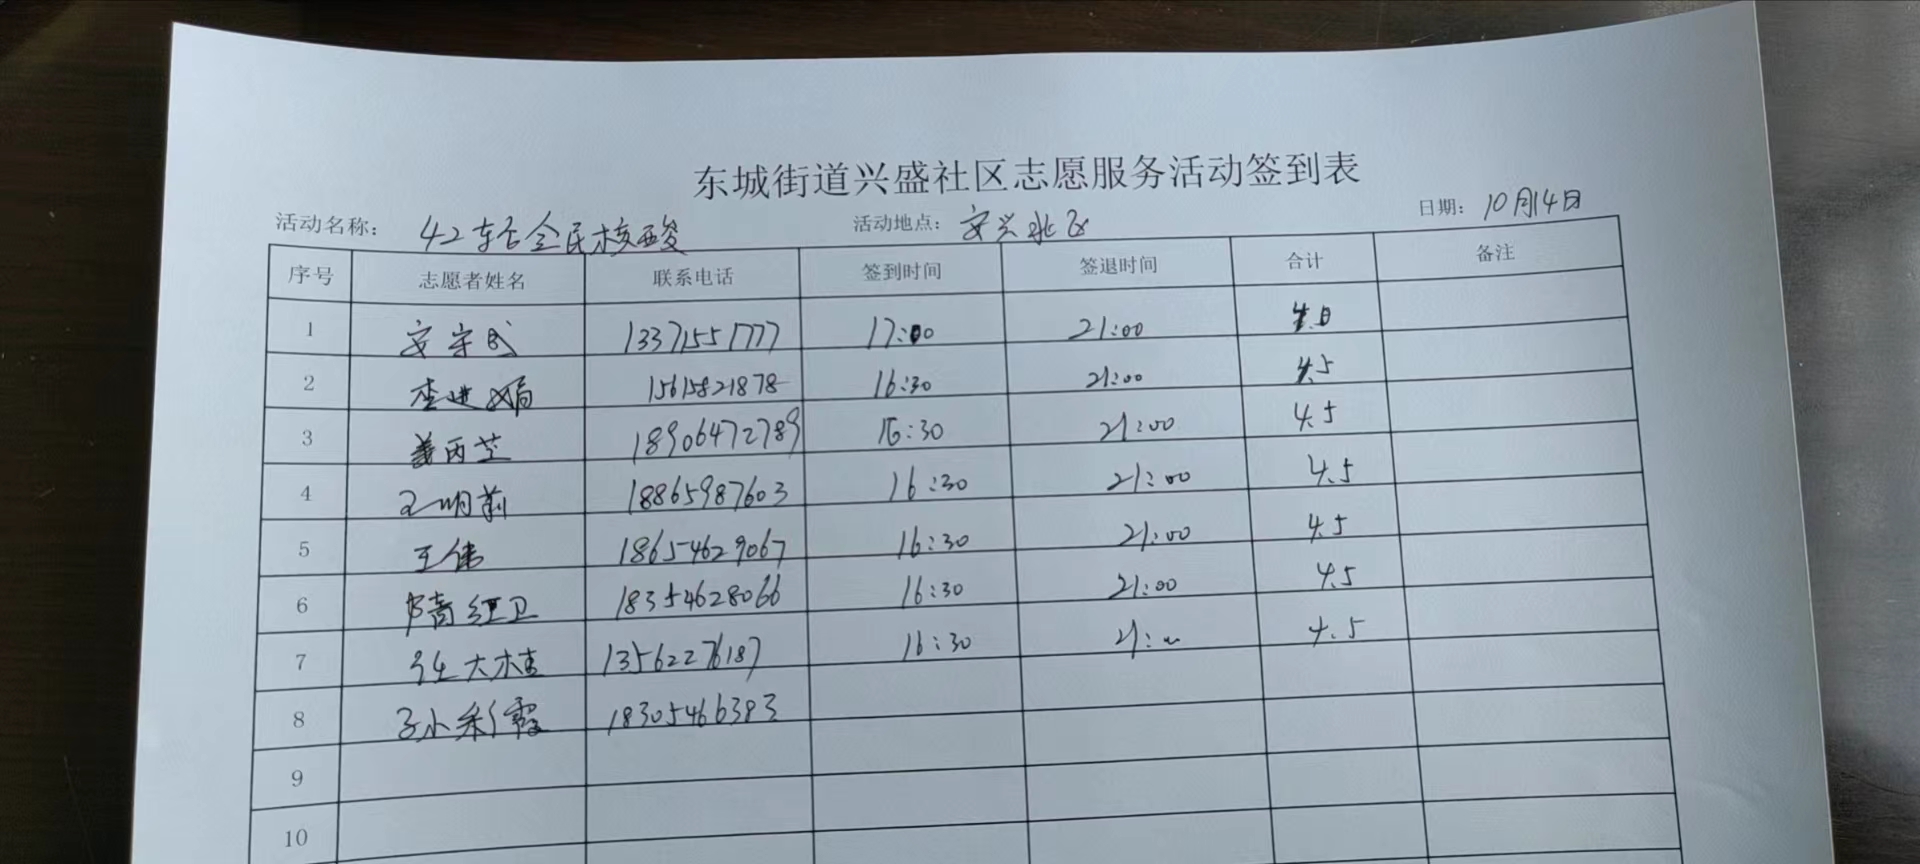 东城街道兴盛社区志愿服务活动签到表
活动名称: 42轮全民核酸 活动地点: 安兴北区 日期: 10月14日
序号 志愿者姓名 联系电话 签到时间 签退时间 合计 备注
1 安宇民 13371551777 17:00 21:00 4.0
2 李进娟 15615821878 16:30 21:00 4.5
3 姜丙芝 18906472789 16:30 21:00 4.5
4 王明莉 18865987603 16:30 21:00 4.5
5 王伟 18654629067 16:30 21:00 4.5
6 隋红卫 18354628066 16:30 21:00 4.5
7 任大桂 13562276187 16:30 21: 4.5
8 孙彩霞 18305466383
9
10